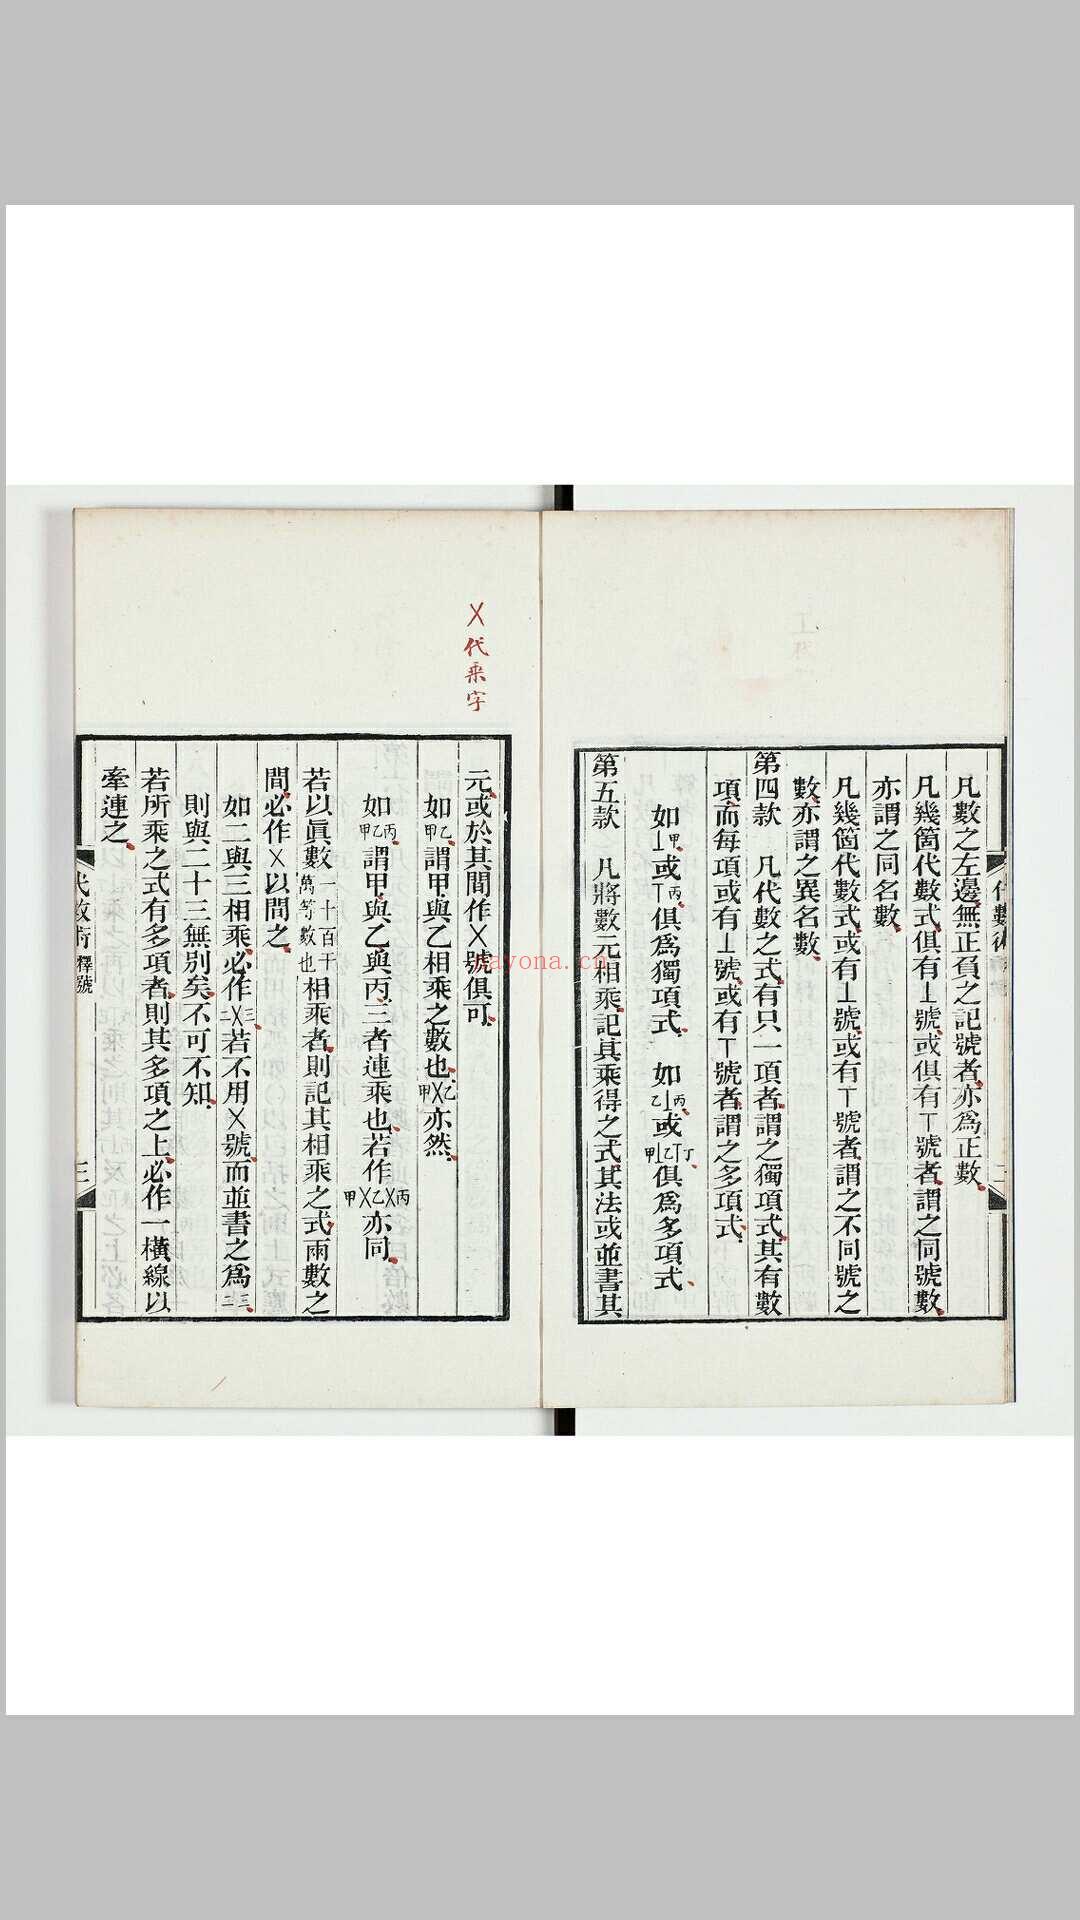 凡數之左邊無正負之記號者亦爲正數
凡幾箇代數式俱有⊥號或俱有丅號者謂之同號數
亦謂之同名數
凡幾箇代數式或有⊥號或有丅號者謂之不同號之
數亦謂之異名數
第四款　凡代數之式有只一項者謂之獨項式其有數
項而每項或有⊥號或有丅號者謂之多項式
如⊥甲或丅丙俱爲獨項式　如乙⊥丙或甲⊥乙丅丁俱爲多項式
第五款　凡將數元相乘記其乘得之式其法或並書其
代數術
二
╳代乘字
元或於其間作╳號俱可
如甲乙謂甲與乙相乘之數也甲╳乙亦然
如甲乙丙謂甲與乙與丙三者連乘也若作甲╳乙╳丙亦同
若以眞數一十百千萬等數也相乘者則記其相乘之式兩數之
間必作╳以間之
如二與三相乘必作二╳三若不用╳號而並書之爲二三
則與二十三無別矣不可不知
若所乘之式有多項者則其多項之上必作一橫線以
牽連之
代數術 釋號
三
nayona.cn